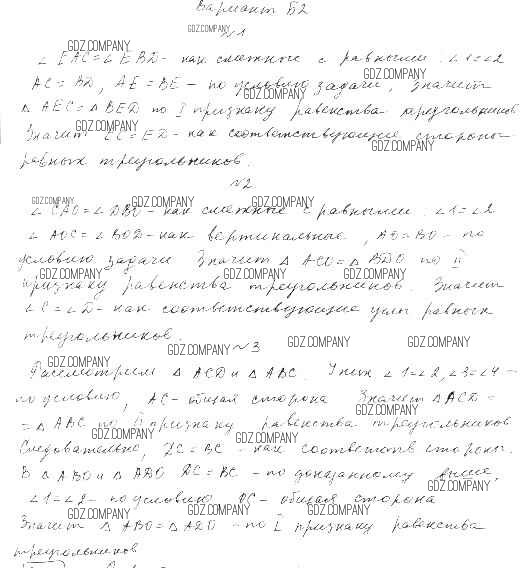 Вариант Б2
GDZ.COMPANY
№1
GDZ.COMPANY
∠EAC=∠EBD - как смежные с равными: ∠1=∠2
AC=BD, AE=BE - по условию задачи, значит
GDZ.COMPANY GDZ.COMPANY
△AEC=△BED по I признаку равенства треугольников
GDZ.COMPANY
Значит EC=ED - как соответствующие стороны
GDZ.COMPANY
равных треугольников.
№2
GDZ.COMPANY GDZ.COMPANY GDZ.COMPANY
∠CAO=∠DBO - как смежные с равными: ∠1=∠2
∠AOC=∠BOD - как вертикальные, AO=BO - по
условию задачи Значит △ACO=△BDO по II
GDZ.COMPANY GDZ.COMPANY GDZ.COMPANY
признаку равенства треугольников. Значит
∠C=∠D - как соответствующие углы равных
GDZ.COMPANY
треугольников.
GDZ.COMPANY №3 GDZ.COMPANY GDZ.COMPANY
GDZ.COMPANY
Рассмотрим △ACD и △ABC. У них ∠1=∠2, ∠3=∠4 -
по условию, AC - общая сторона Значит △ACD =
GDZ.COMPANY
=△ABC по II признаку равенства треугольников
GDZ.COMPANY GDZ.COMPANY
Следовательно, DC=BC - как соответств стороны.
В △ABO и △ADO DC=BC - по доказанному выше,
GDZ.COMPANY
∠1=∠2 - по условию OC - общая сторона
GDZ.COMPANY GDZ.COMPANY GDZ.COMPANY
Значит △ABO=△ADO - по I признаку равенства
треугольников